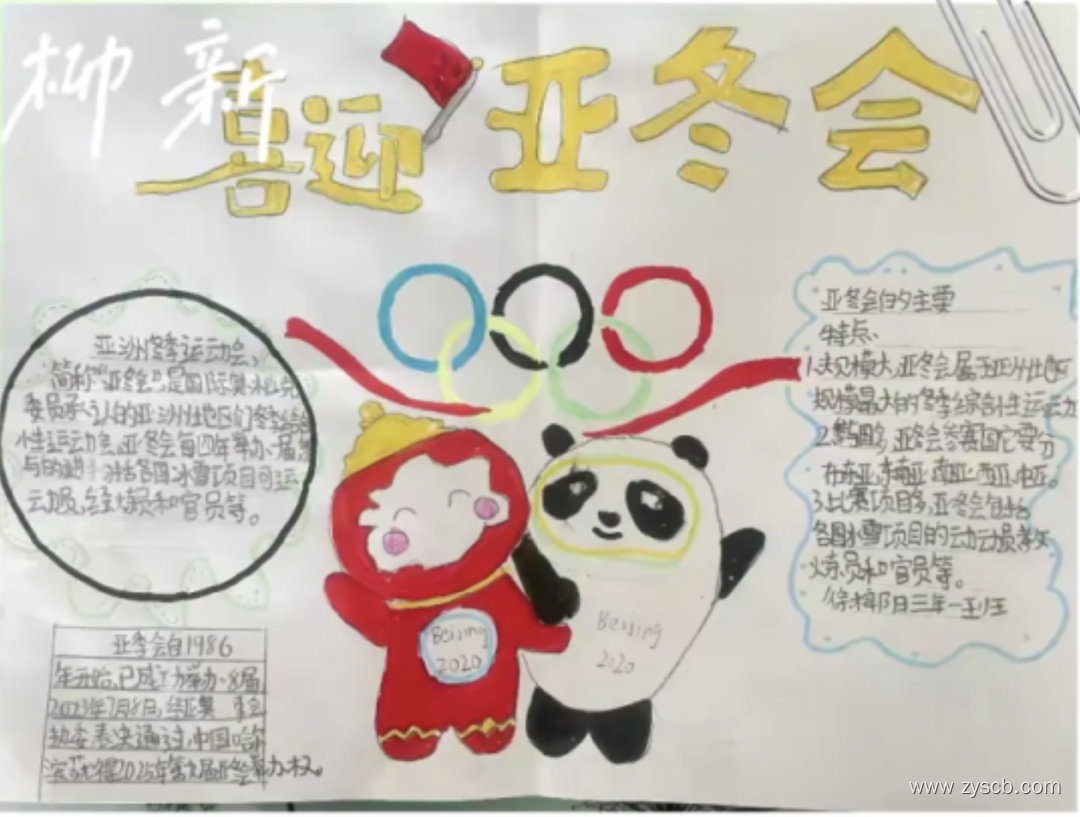 柳新
喜迎亚冬会
亚洲冬季运动会,
简称"亚冬会",是国际奥林匹克
委员承认的亚洲地区们冬季综合
性运动会,亚冬会每四年举办一届,参
与的选手 洲各国冰雪项目司运
动员,教练员和官员等。
亚冬会的主要
特点、
1.大规模大,亚冬会属于亚洲地区
规模最大的冬季综合性运动
2. 多,亚冬会参赛国它要分
布东亚,东南亚,南亚,西亚,中亚。
3.比赛项目多,亚冬会包括
各国冰雪项目的动动员,教
炼员和官员等。
徐梓阳三年一班
Beijing
2020
Beijing
2020
亚季会自1986
年开始,已成功举办8届
2023年7月8日,经亚奥 会
执委表决通过,中国哈尔
滨获得2025年第九届亚冬举办权。
www.zyscb.com